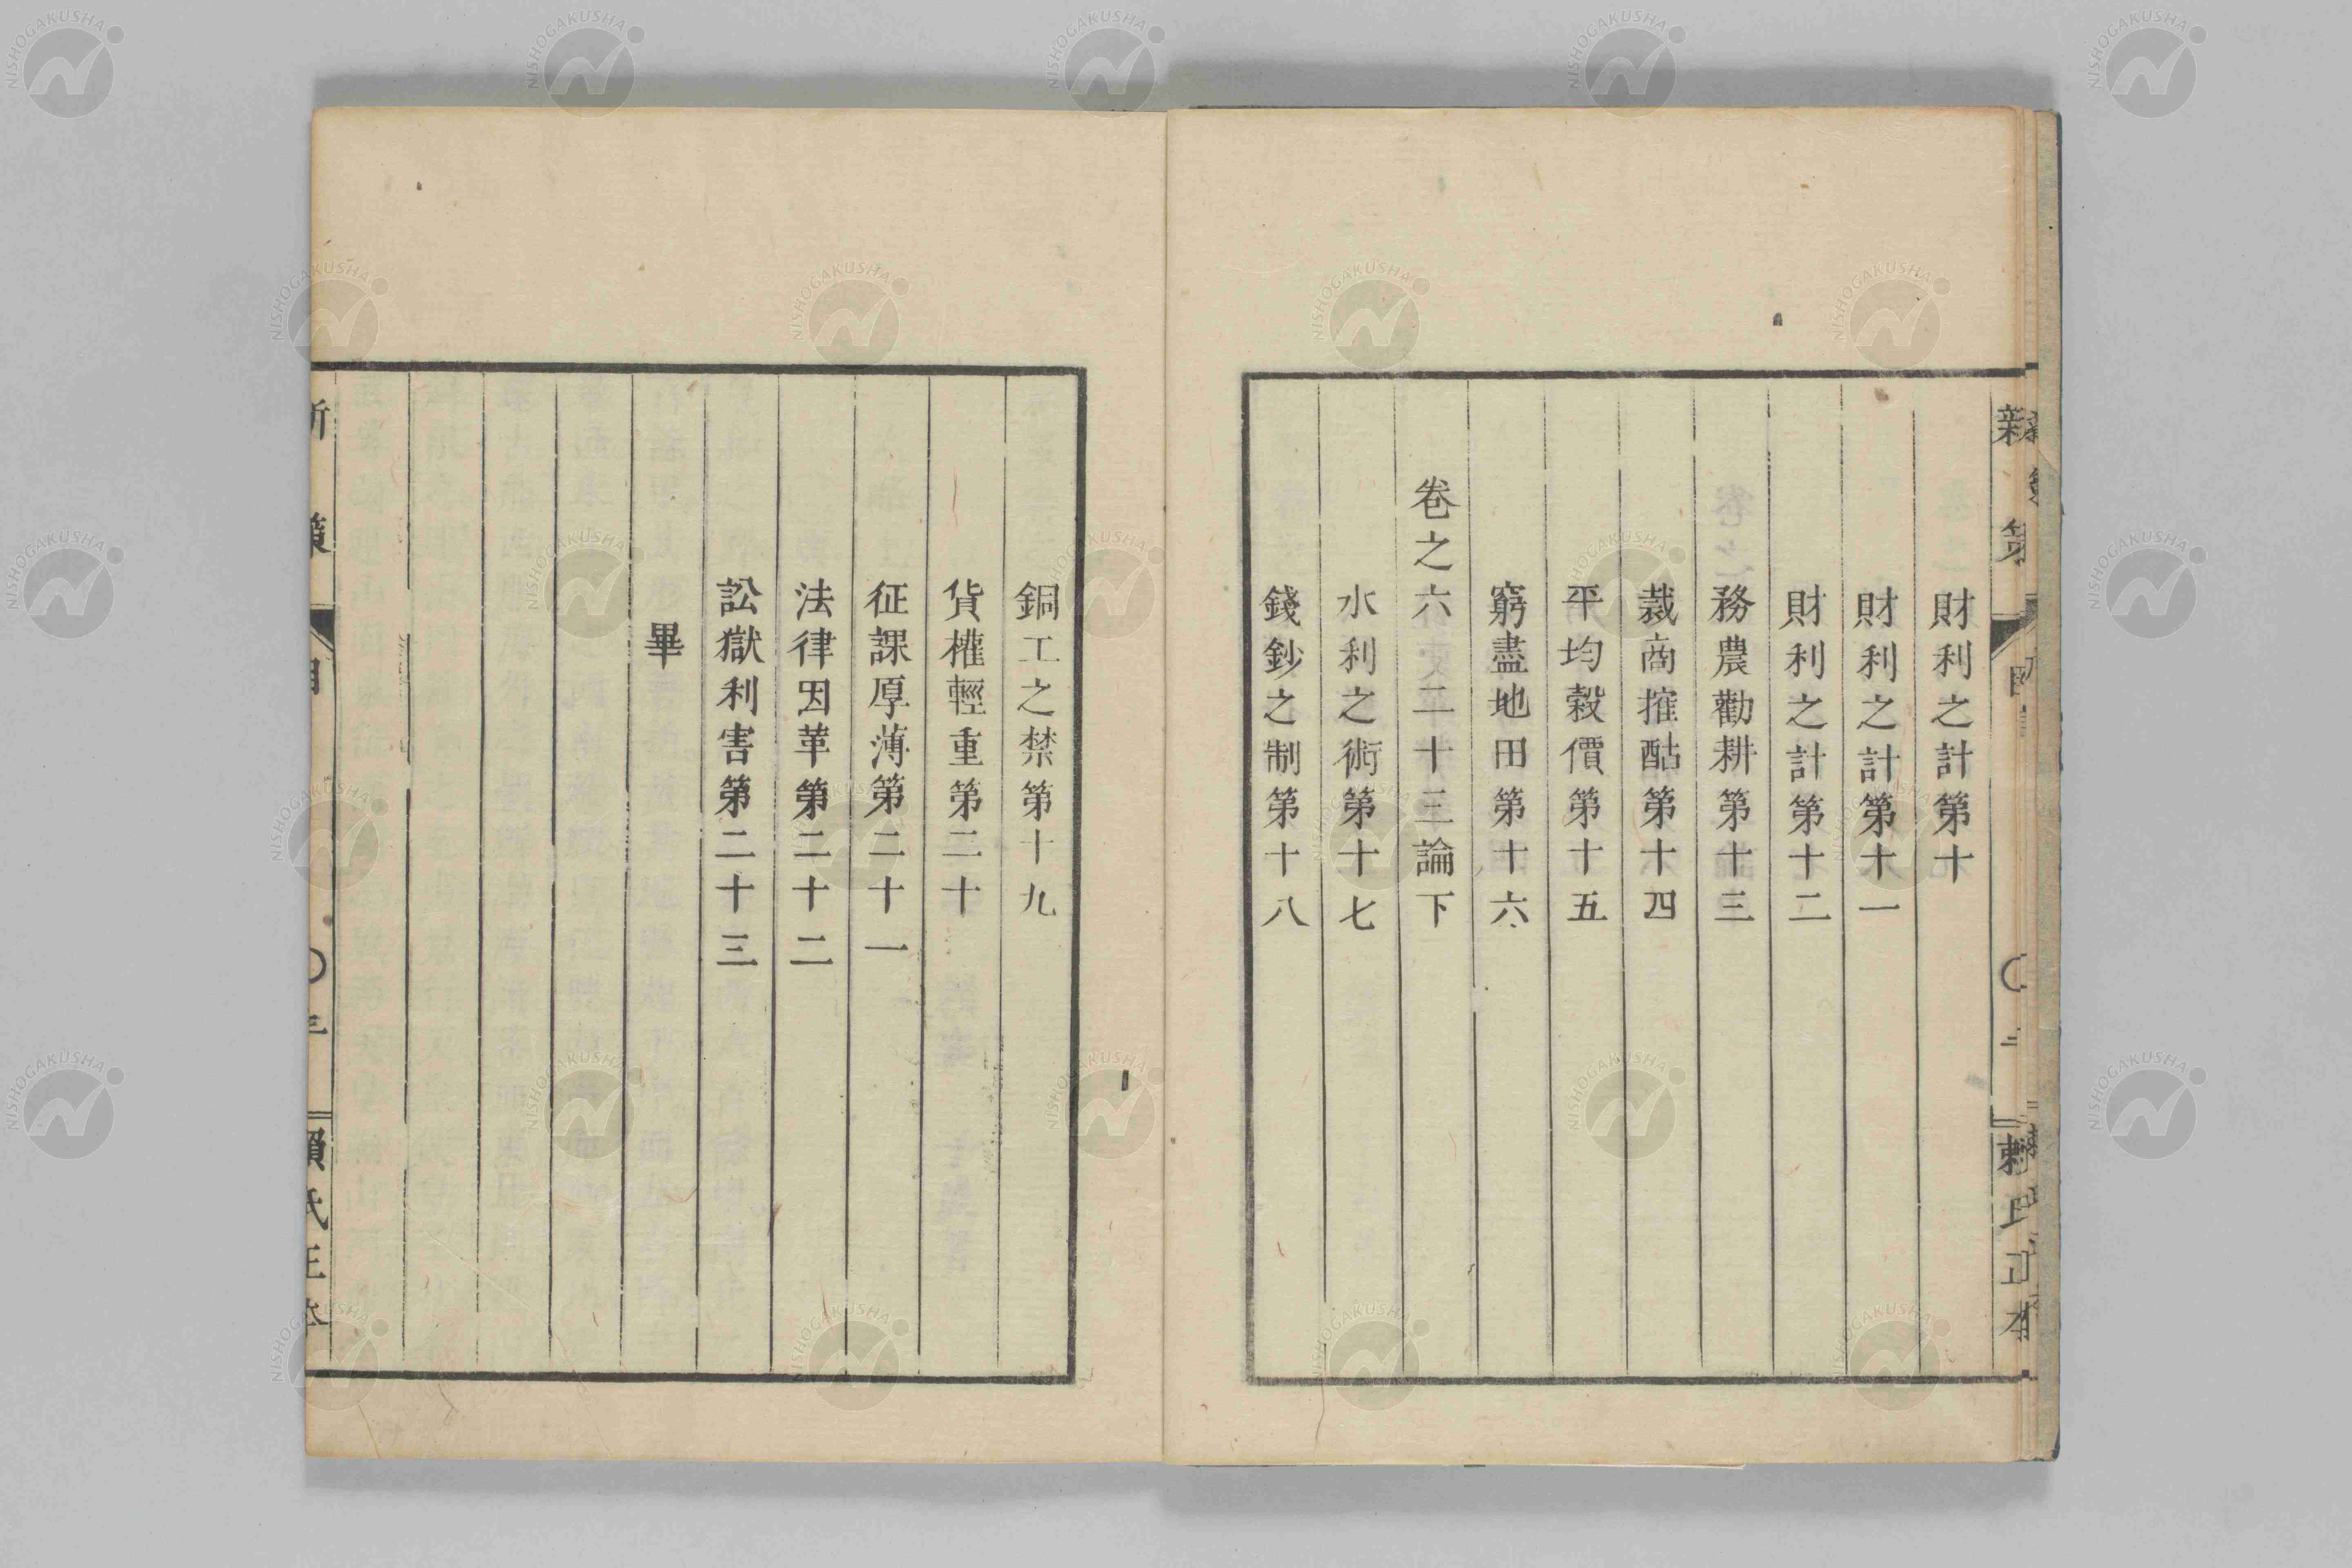 財利之計第十
財利之計第十一
財利之計第十二
務農勸耕第十三
裁商搉酤第十四
平均穀價第十五
窮盡地田第十六
卷之六二十三論下
水利之術第十七
錢鈔之制第十八
銅工之禁第十九
貨權輕重第二十
征課厚薄第二十一
法律因革第二十二
訟獄利害第二十三
畢
新策
賴氏正本
NISHOGAKUSHA